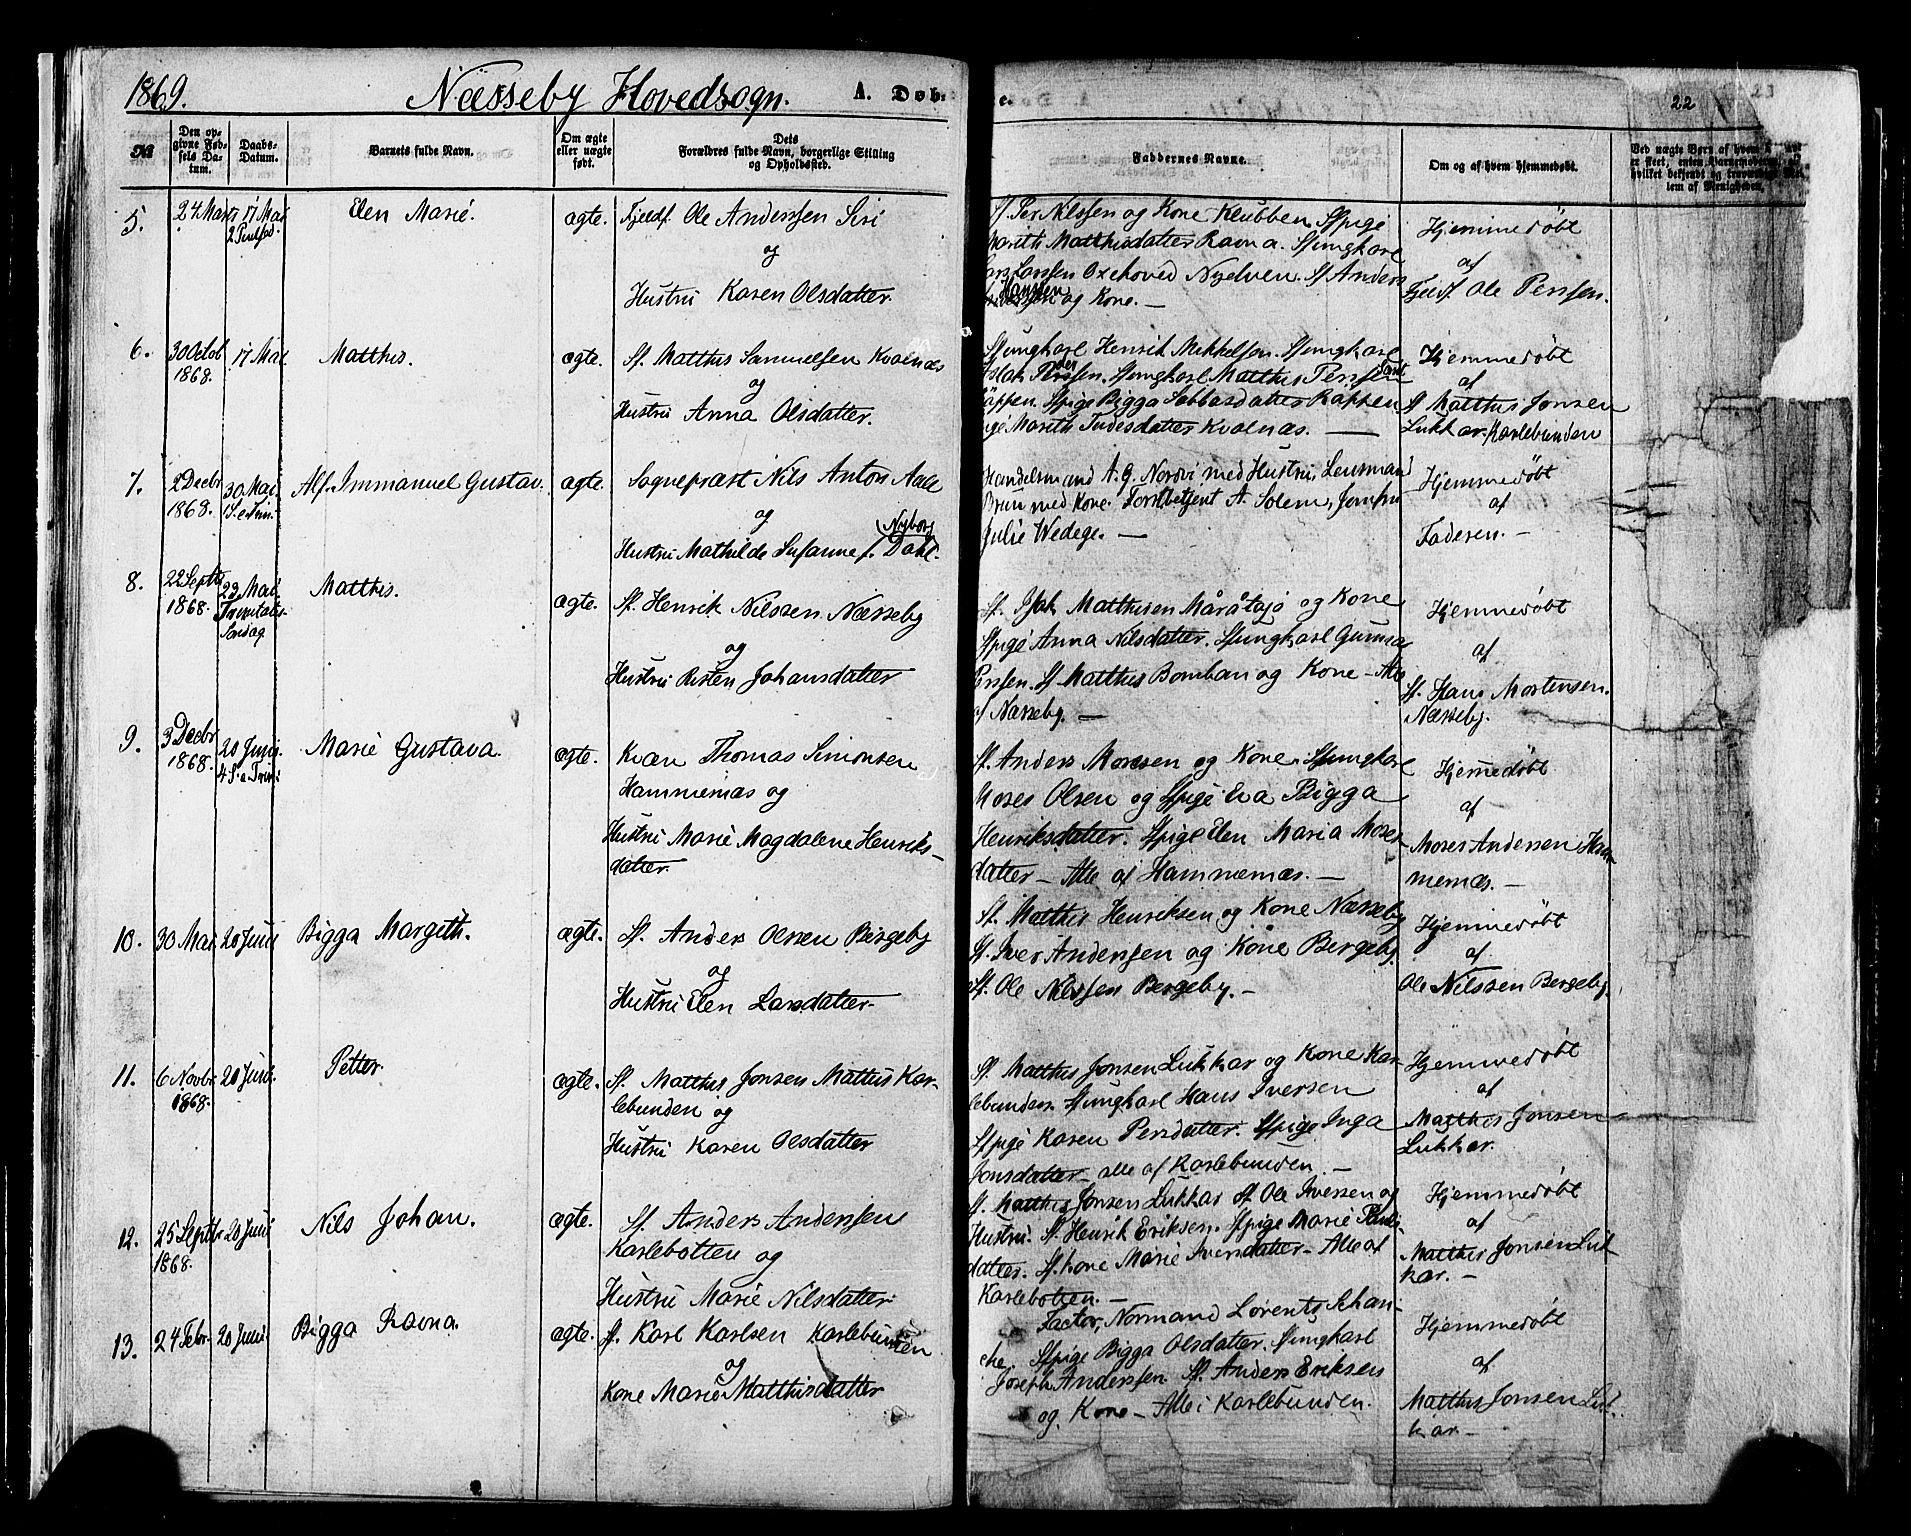 1869. Næsseby Hovedsogn. A. Døb- e. 22
№
Den op-
givne Fød-
sels Da-
tum.
Daabs-
Datum.
Barnets fulde Navn.
Om ægte
eller uægte
født.
Dets
Forældres fulde Navn, borgerlige Stilling
og Opholdssted.
Faddernes Navne.
Om og af hvem hjemmedøbt.
Ved uægte Børn af hvem
er skeet, enten Barnemoderen
hvilket bekjendt og troværdigt
lem af Menigheden.
5. 24 Mars 17 Mai Elen Marie. ægte. Fjeldf. Ole Anderssen Siri
og
Hustru Karen Olsdatter.
Sf. Per Nilssen og Kone Klubben, Sfpige
Marith Matthisdatter Ravna. Sfungkarl
Lars Larssen Oxehoved Nyelven. Sf. Anders
Hanssen og Kone. —
Hjemmedøbt
af
Fjeldf. Ole Perssen.
6. 30 Octob 17 Mai Matthis. ægte. Sf. Matthis Samuelsen Kvalnæs
1868.
og
Hustru Anna Olsdatter.
Sfungkarl Henrik Mikkelsen. Sfungkarl
Islak Perssen. Sfungkarl Matthis Perssen
Kappen. Sfpige Bigga Sabbasdatter Kappen
Marith Tudesdatter Kvalnæs. —
Hjemmedøbt
af
Sf. Matthis Jonsen
Lukkar. Karlebunden
7. 2 Decbr 30 Mai Alf. Immanuel Gustav. ægte. Sognepræst Nils Anton Aall
1868.
og
Hustru Mathilde Susanne f. Dahl. (Nyborg)
Handelsmand A. G. Nordvi med Hustru, Lensmand
Brun med Kone. Forstbetjent A. Solem, Jomfru
Julie Wedege. —
Hjemmedøbt
af
Faderen. —
8. 22 Septb 23 Mai Matthis. ægte. Sf. Henrik Nilssen Næsseby
1868. Trinitatis
Søndag
og
Hustru Risten Johansdatter
Sf. Isak Matthisen Måråtajo og Kone
Sfpige Anna Nilsdatter. Sfungkarl Gunnar
Perssen. Sf. Matthis Bomban og Kone — Alle
af Næsseby. —
Hjemmedøbt
af
Sf. Hans Mortensen.
Næsseby.
9. 3 Decbr 20 Juni. Marie Gustava. ægte. Kvæn Thomas Simonsen
1868. 4 S. a Trin:
Hammernæs og
Hustru Marie Magdalene Henriks-
datter.
Sf. Anders Morssen og Kone. Sfungkarl
Moses Olsen og Sfpige Eva Bigga
Henriksdatter. Sfpige Elen Maria Moses-
datter — Alle af Hammernæs. —
Hjemmedøbt
af
Moses Andersen Ham-
mernæs. —
10. 30 Mai 20 Juni Bigga Margith. ægte. Sf. Anders Olssen Bergeby
og
Hustru Elen Larsdatter
Sf. Matthis Henriksen og Kone Næsseby
Sf. Iver Anderssen og Kone Bergeby.
Sf. Ole Nilssen Bergeby. —
Hjemmedøbt
af
Ole Nilssen Bergeby.
11. 6 Novbr 20 Juni Petter ægte. Sf. Matthis Jonsen Mattus Kar-
1868.
lebunden og
Hustru Karen Olsdatter
Sf. Matthis Jonsen Lukkar og Kone Kar-
lebunden. Sfungkarl Hans Iversen
Sfpige Karen Persdatter. Sfpige Inga
Jonsdatter — alle af Karlebunden. —
Hjemmedøbt
af
Matthis Jonsen
Lukkar.
12. 25 Septbr 20 Juni Nils Johan. ægte. Sf. Anders Anderssen
1868.
Karlebotten og
Hustru Marie Nilsdatter
Sf. Matthis Jonsen Lukkar Sf. Ole Iverssen og
Hustru. Sf. Henrik Eriksen. Sfpige Marie Pauls-
datter. Sf. kone Marie Iversdatter — Alle af
Karlebotten. —
Hjemmedøbt
af
Matthis Jonsen Luk-
kar. —
13. 24 Febr. 20 Juni Bigga Ravna. ægte. Sf. Karl Karlsen Karlebunden
og
Kone Marie Matthisdatter
Factor, Normand Lorents Schan-
che. Sfpige Bigga Olsdatter. Sfungkarl
Joseph Anderssen Sf. Anders Eriksen
og Kone — Alle i Karlebunden.
Hjemmedøbt
af
Matthis Jonsen Luk-
kar. —